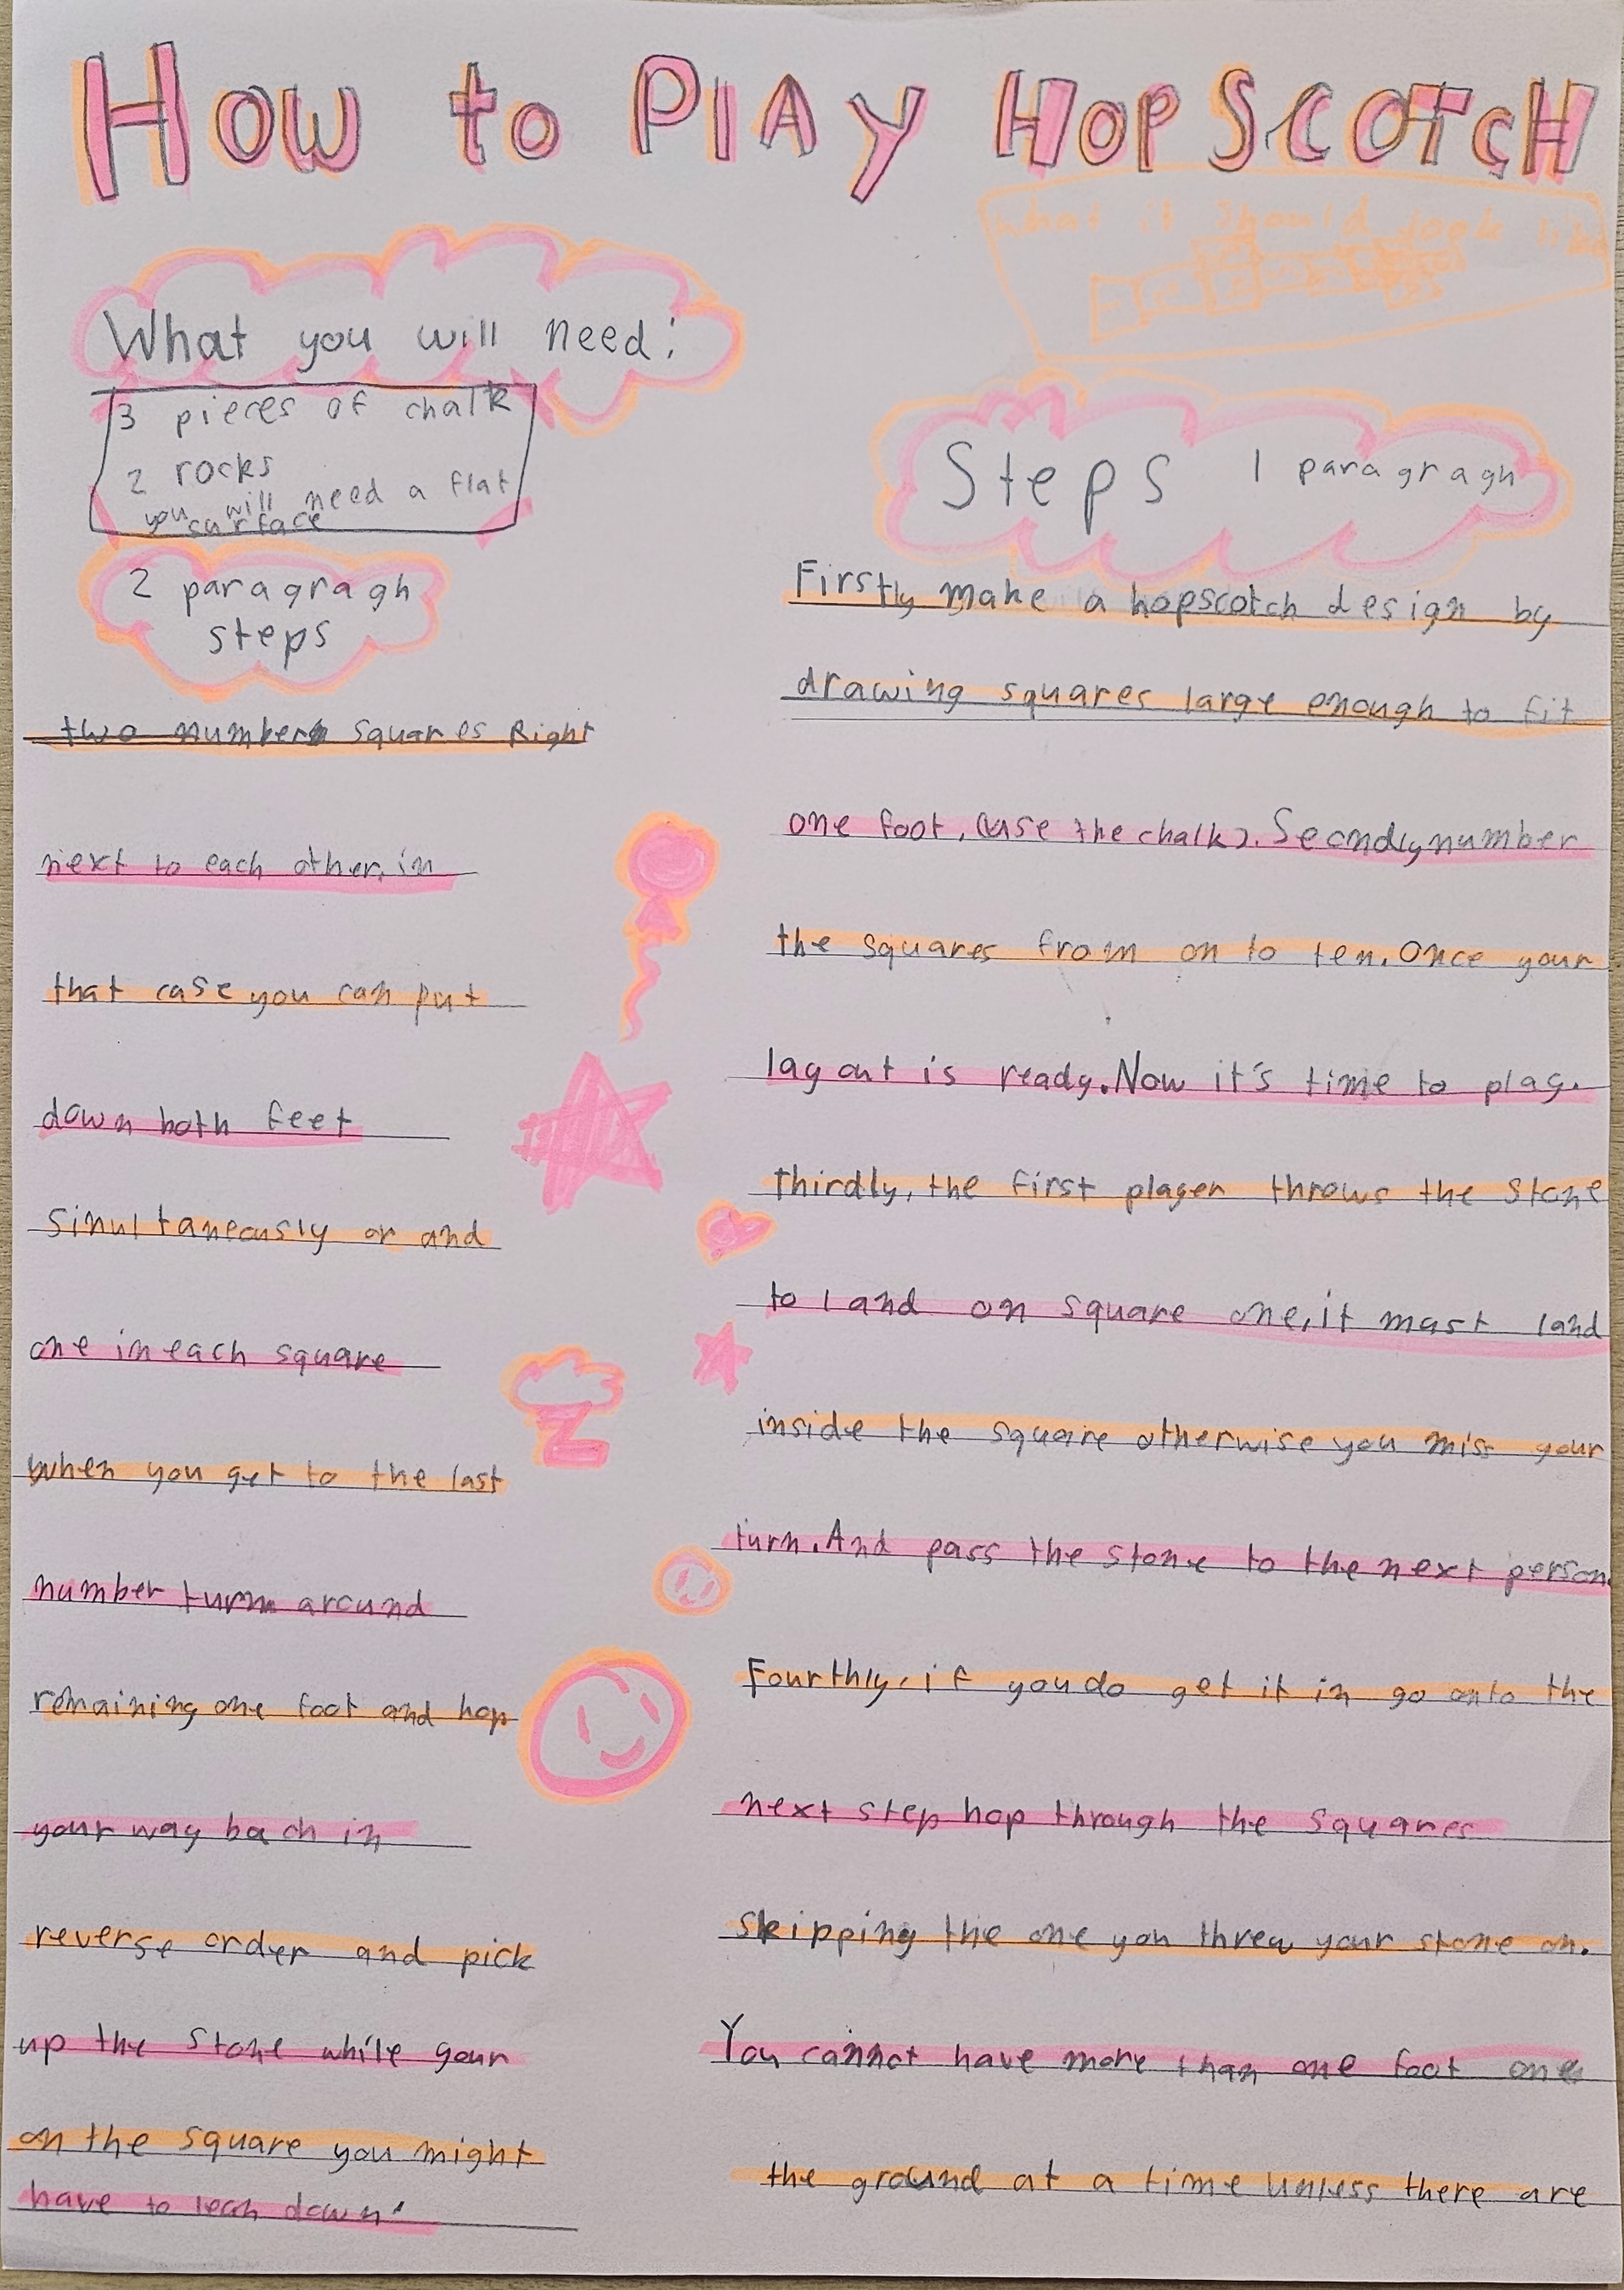 How to PlAy HopScOTcH
what it should look like
What you will need:
3 pieces of chalk
2 rocks
you will need a flat
surface
Steps 1 paragragh
Firstly make a hopscotch design by
drawing squares large enough to fit
one foot, (use the chalk). Secondly number
the squares from on to ten. Once your
lay out is ready. Now it's time to play.
Thirdly, the first player throws the stone
to land on square one, it must land
inside the square otherwise you miss your
turn. And pass the stone to the next person.
Fourthly, if you do get it in go onto the
next step hop through the squares
skipping the one you threw your stone on.
You cannot have more than one foot one
the ground at a time unless there are
2 paragragh
steps
two number squares Right
next to each other, in
that case you can put
down both feet
sinultaneously or and
one in each square
when you get to the last
number turn around
remaining one foot and hop
your way bach in
reverse order and pick
up the stone while your
on the square you might
have to lean down.